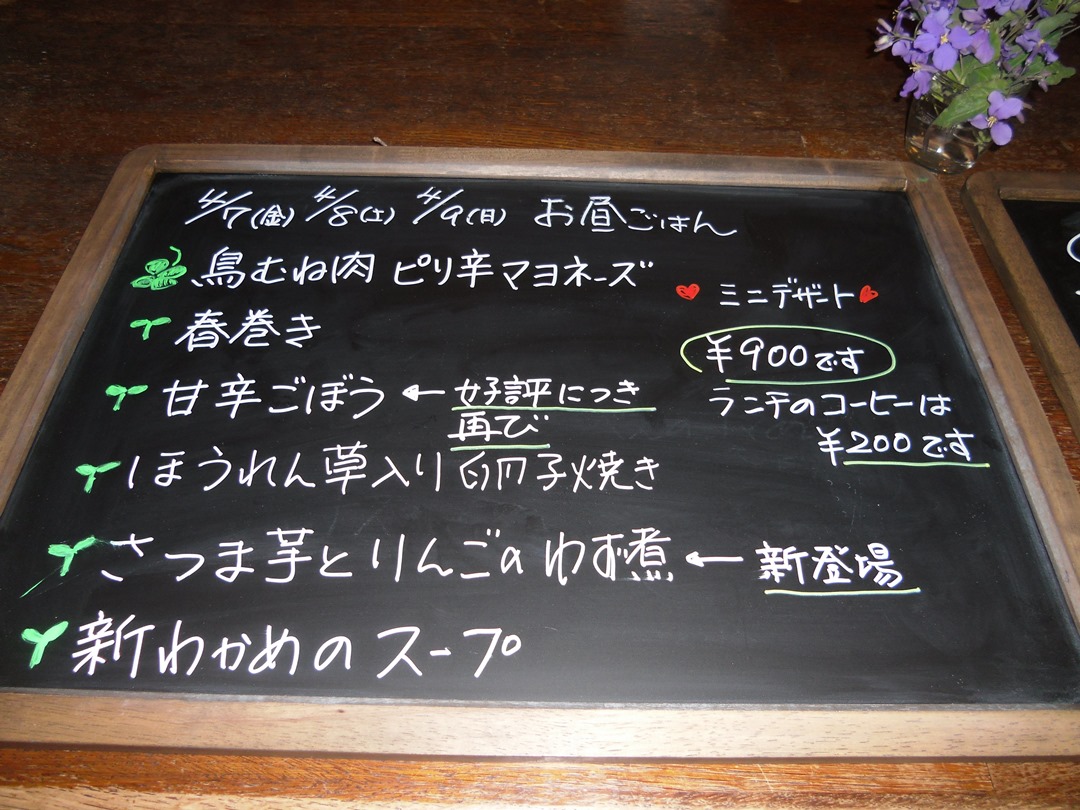 4/7(金) 4/8(土) 4/9(日) お昼ごはん
鳥むね肉 ピリ辛マヨネーズ
春巻き
甘辛ごぼう ← 好評につき
再び
ほうれん草入り卵子焼き
さつま芋とりんごのゆず煮 ← 新登場
新わかめのスープ
ミニデザート
¥900です
ランチのコーヒーは
¥200です